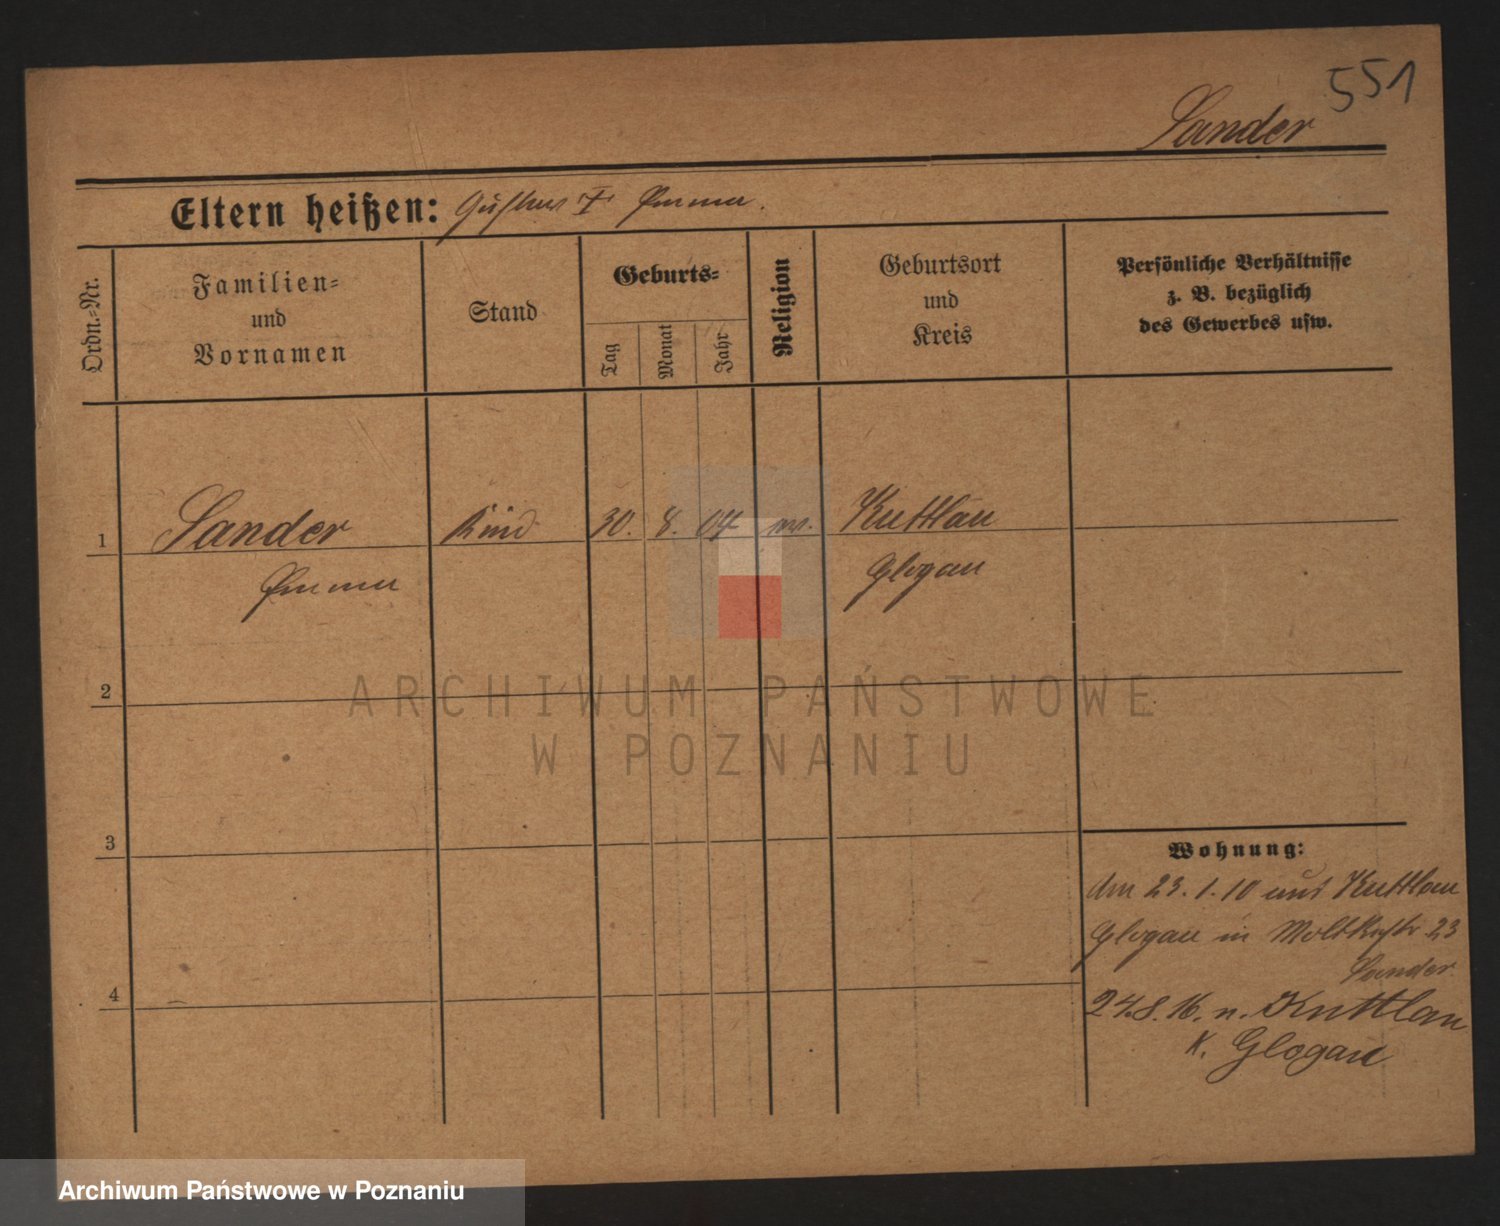 551
Sander
Eltern heißen: Gustav u. Emma.
Ordn.-Nr.
Familien-
und
Vornamen
Stand
Geburts-
Tag
Monat
Jahr
Religion
Geburtsort
und
Kreis
Persönliche Verhältnisse
z. B. bezüglich
des Gewerbes usw.
1 Sander Kind 30. 8. 04 Kuttlau
Emma Glogau
2
3
4
Wohnung:
den 23.1.10 aus Kuttlau
Glogau in Moltkestr 23
Sander
24.8.16. n. Kuttlau
K. Glogau
ARCHIWUM PAŃSTWOWE
W POZNANIU
Archiwum Państwowe w Poznaniu